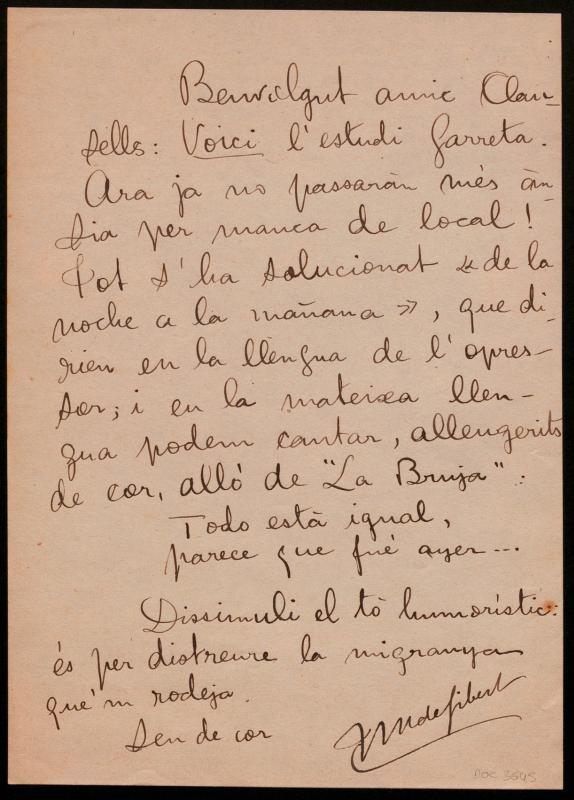 Benvolgut amic Clan-
sells: Voici l'estudi Garreta.
Ara ja no passaràn més àn-
sia per manca de local!
Tot s'ha solucionat «de la
noche a la mañana», que di-
rien en la llengua de l'opres-
sor; i en la mateixa llen-
gua podem cantar, alleugerits
de cor, alló de "La Bruja":
Todo está igual,
parece que fué ayer...
Dissimuli el tò humorístic:
és per distreure la migranya
que'm rodeja.
Seu de cor
DOC 3645